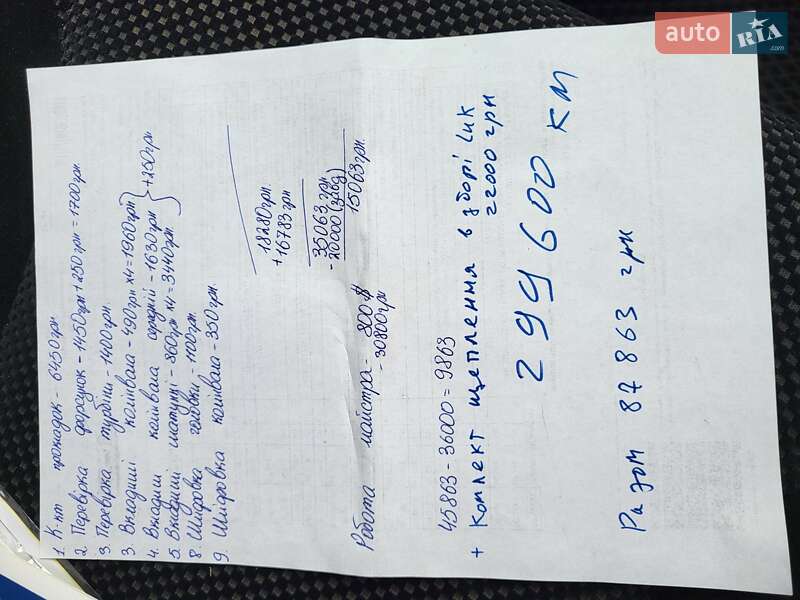 auto RIA .com
1. К-кт прокладок - 6450грн
2. Перевірка форсунок - 1450грн + 250грн = 1700грн
3. Перевірка турбіни - 1400грн.
3. Вкладиші колінвала - 490грн х4 = 1960грн
4. Вкладиші колінвала средній - 1630грн } +250грн
5. Вкладиші шатунні - 860грн х4 = 3440грн
8. Шліфовка головки - 1100грн.
9. Шліфовка колінвала - 350грн.
18280грн.
+16783грн
35063 грн
-20000 (
15063грн.
Робота майстра - 800 $
- 30800грн
45863 - 36000 = 9863
+ Комплект щеплення в зборі Luk
22000 грн
299600 км
Разом 87863 грн